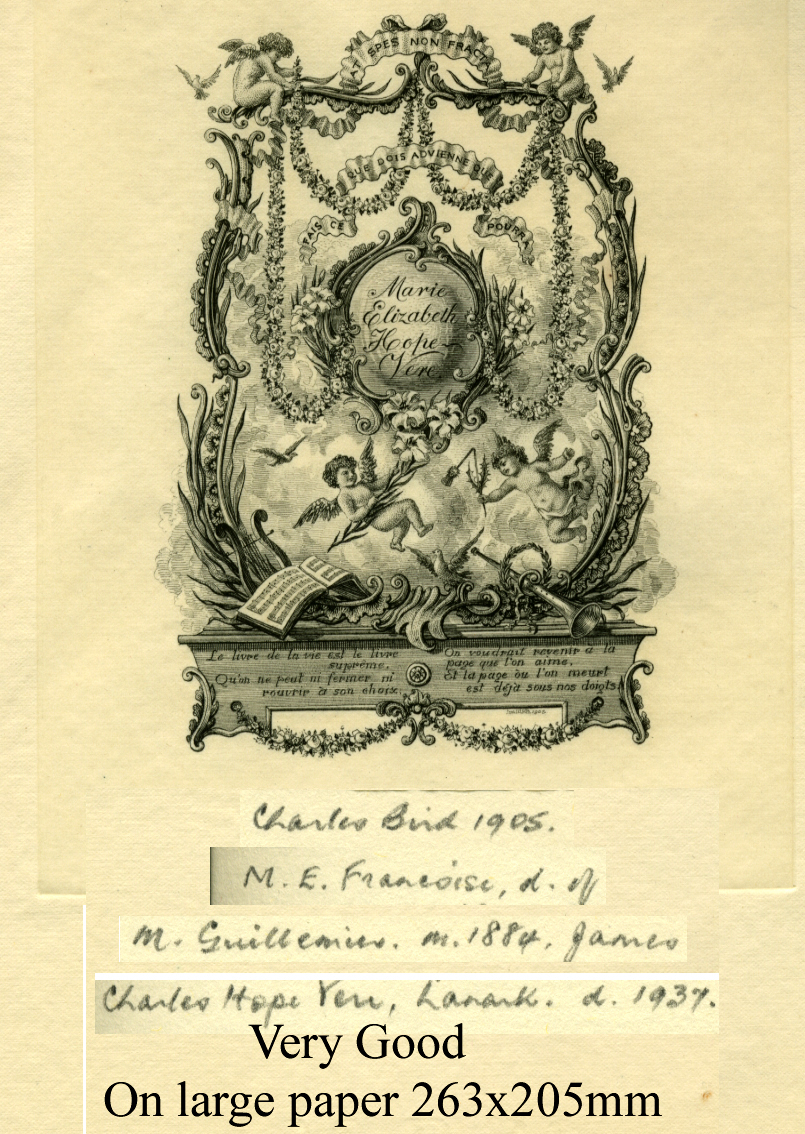 AT SPES NON FRACTA
FAIS CE QUE DOIS ADVIENNE QUE POURRA
Marie
Elizabeth
Hope-
Vere
Le livre de la vie est le livre
suprême,
Qu'on ne peut ni fermer ni
rouvrir à son choix,
On voudrait revenir à la
page que l'on aime,
Et la page où l'on meurt
est déjà sous nos doigts.
Charles Bird 1905.
M. E. Françoise, d. of
M. Guillemin. m. 1884. James
Charles Hope Vere, Lanark. d. 1937.
Very Good
On large paper 263x205mm